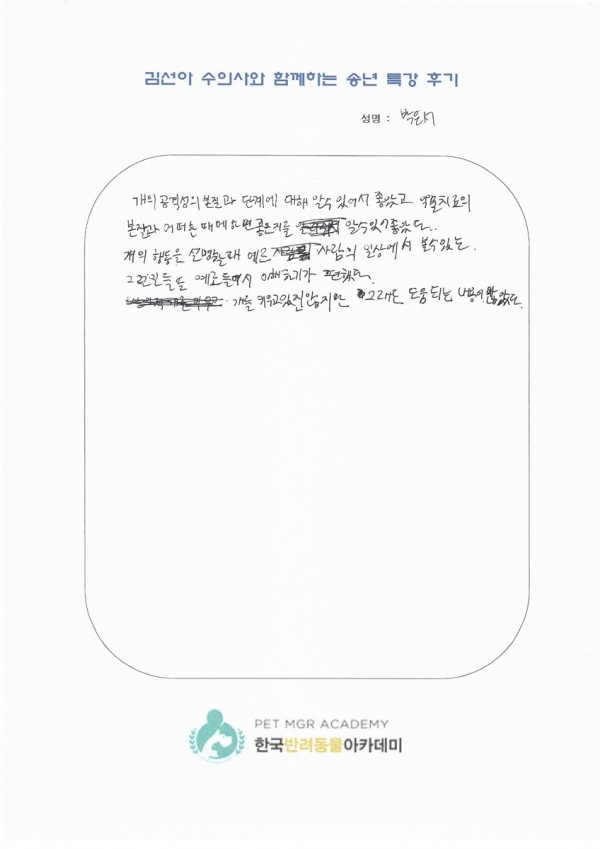 김선아 수의사와 함께하는 송년 특강 후기
성명 : 박은서
개의 공격성의 본질과 단계에 대해 알수 있어서 좋았고 약물치료의
본질과 어떠한 때에 쓰면 좋은지를 알수있어좋았다.
개의 행동을 설명할때 예로 사람의 일상에서 볼수있는
그런일들을 예로들어서 이해하기가 편했다.
개를 키우고있진않지만 그래도 도움되는 내용이 많았다.
PET MGR ACADEMY
한국반려동물아카데미